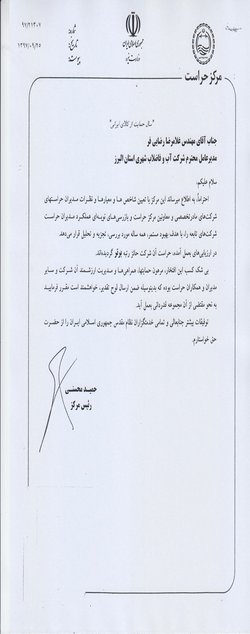 جمهوری اسلامی ایران
شماره:
۹۷/۲۱۳۰۷
تاریخ:
۱۳۹۷/۰۹/۲۵
پیوست:
مرکز حراست
"سال حمایت از کالای ایرانی"
جناب آقای مهندس غلامرضا رضایی فر
مدیرعامل محترم شرکت آب و فاضلاب شهری استان البرز
سلام علیکم،
احتراماً، به اطلاع میرساند این مرکز با تعیین شاخص ها و معیارها و نظرات مدیران حراستهای
شرکت‌های مادرتخصصی و معاونین مرکز حراست و بازرسی‌های دوره‌ای عملکرد مدیران حراست
شرکت‌های تابعه را، با هدف بهبود مستمر، همه ساله مورد بررسی، تجزیه و تحلیل قرار می‌دهد.
در ارزیابی‌های بعمل آمده، حراست آن شرکت حائز رتبه برتر گردیده‌اند.
بی شک کسب این افتخار، مرهون حمایتها، همراهی‌ها و مدیریت ارزشمند آن شرکت و سایر
مدیران و همکاران حراست بوده که بدینوسیله ضمن ارسال لوح تقدیر، خواهشمند است مقرر فرمایید
به نحو مقتضی از آن مجموعه قدردانی بعمل آید.
توفیقات بیشتر جنابعالی و تمامی خدمتگزاران نظام مقدس جمهوری اسلامی ایران را از حضرت
حق خواستارم.
حمید محسنی
رئیس مرکز